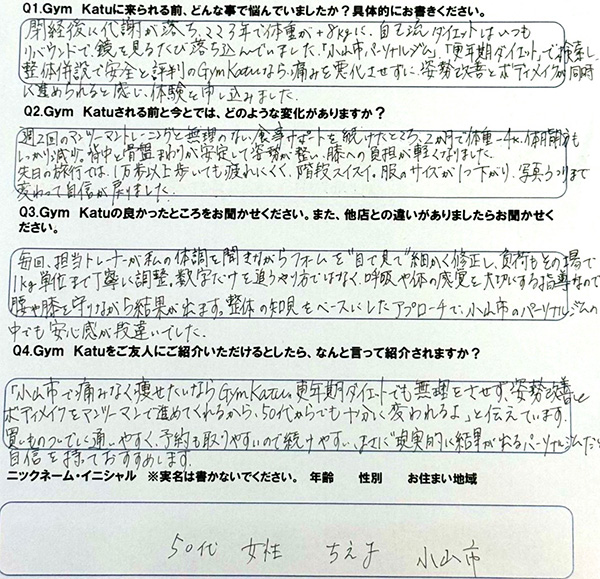 Q1.Gym Katuに来られる前、どんな事で悩んでいましたか？具体的にお書きください。
閉経後に代謝が落ち、ココ3年で体重が+8kgに。自己流ダイエットはいつも
リバウンドで、鏡を見るたび落ち込んでいました。「小山市パーソナルジム」「更年期ダイエット」で検索し、
整体併設で安全と評判のGymKatuなら、痛みを悪化させずに、姿勢改善とボディメイクが同時
に進められると感じ、体験を申し込みました。
Q2.Gym Katuされる前と今とでは、どのような変化がありますか？
週2回のマンツーマントレーニングと無理のない食事サポートを続けたところ、2か月で体重-4k、体脂肪も
しっかり減少。背中と骨盤まわりが安定して姿勢が整い、膝への負担が軽くなりました。
先日の旅行では、1万歩以上歩いても疲れにくく、階段スイスイ。服のサイズが1つ下がり、写真うつりまで
変わって自信が戻りました。
Q3.Gym Katuの良かったところをお聞かせください。また、他店との違いがありましたらお聞かせく
ださい。
毎回、担当トレーナーが私の体調を聞きながらフォームを"目で見て"細かく修正し、負荷もその場で
1kg単位まで丁寧に調整。数字だけを追うやり方ではなく、呼吸や体の感覚を大切にする指導なので
腰や膝を守りながら結果が出ます。整体の知見をベースにしたアプローチで、小山市のパーソナルジムの
中でも安心感が段違いでした。
Q4.Gym Katuをご友人にご紹介いただけるとしたら、なんと言って紹介されますか？
「小山市で痛みなく痩せたいならGymKatu。更年期ダイエットでも無理をさせず、姿勢改善と
ボディメイクをマンツーマンで進めてくれるから、50代からでも十分に変われるよ」と伝えています。
買いものついでに通いやすく、予約も取りやすいので続けやすい。まさに"現実的に結果が出るパーソナルジム"だと
自信を持っておすすめします。
ニックネーム・イニシャル ※実名は書かないでください。 年齢 性別 お住まい地域
50代 女性 ちえ子 小山市